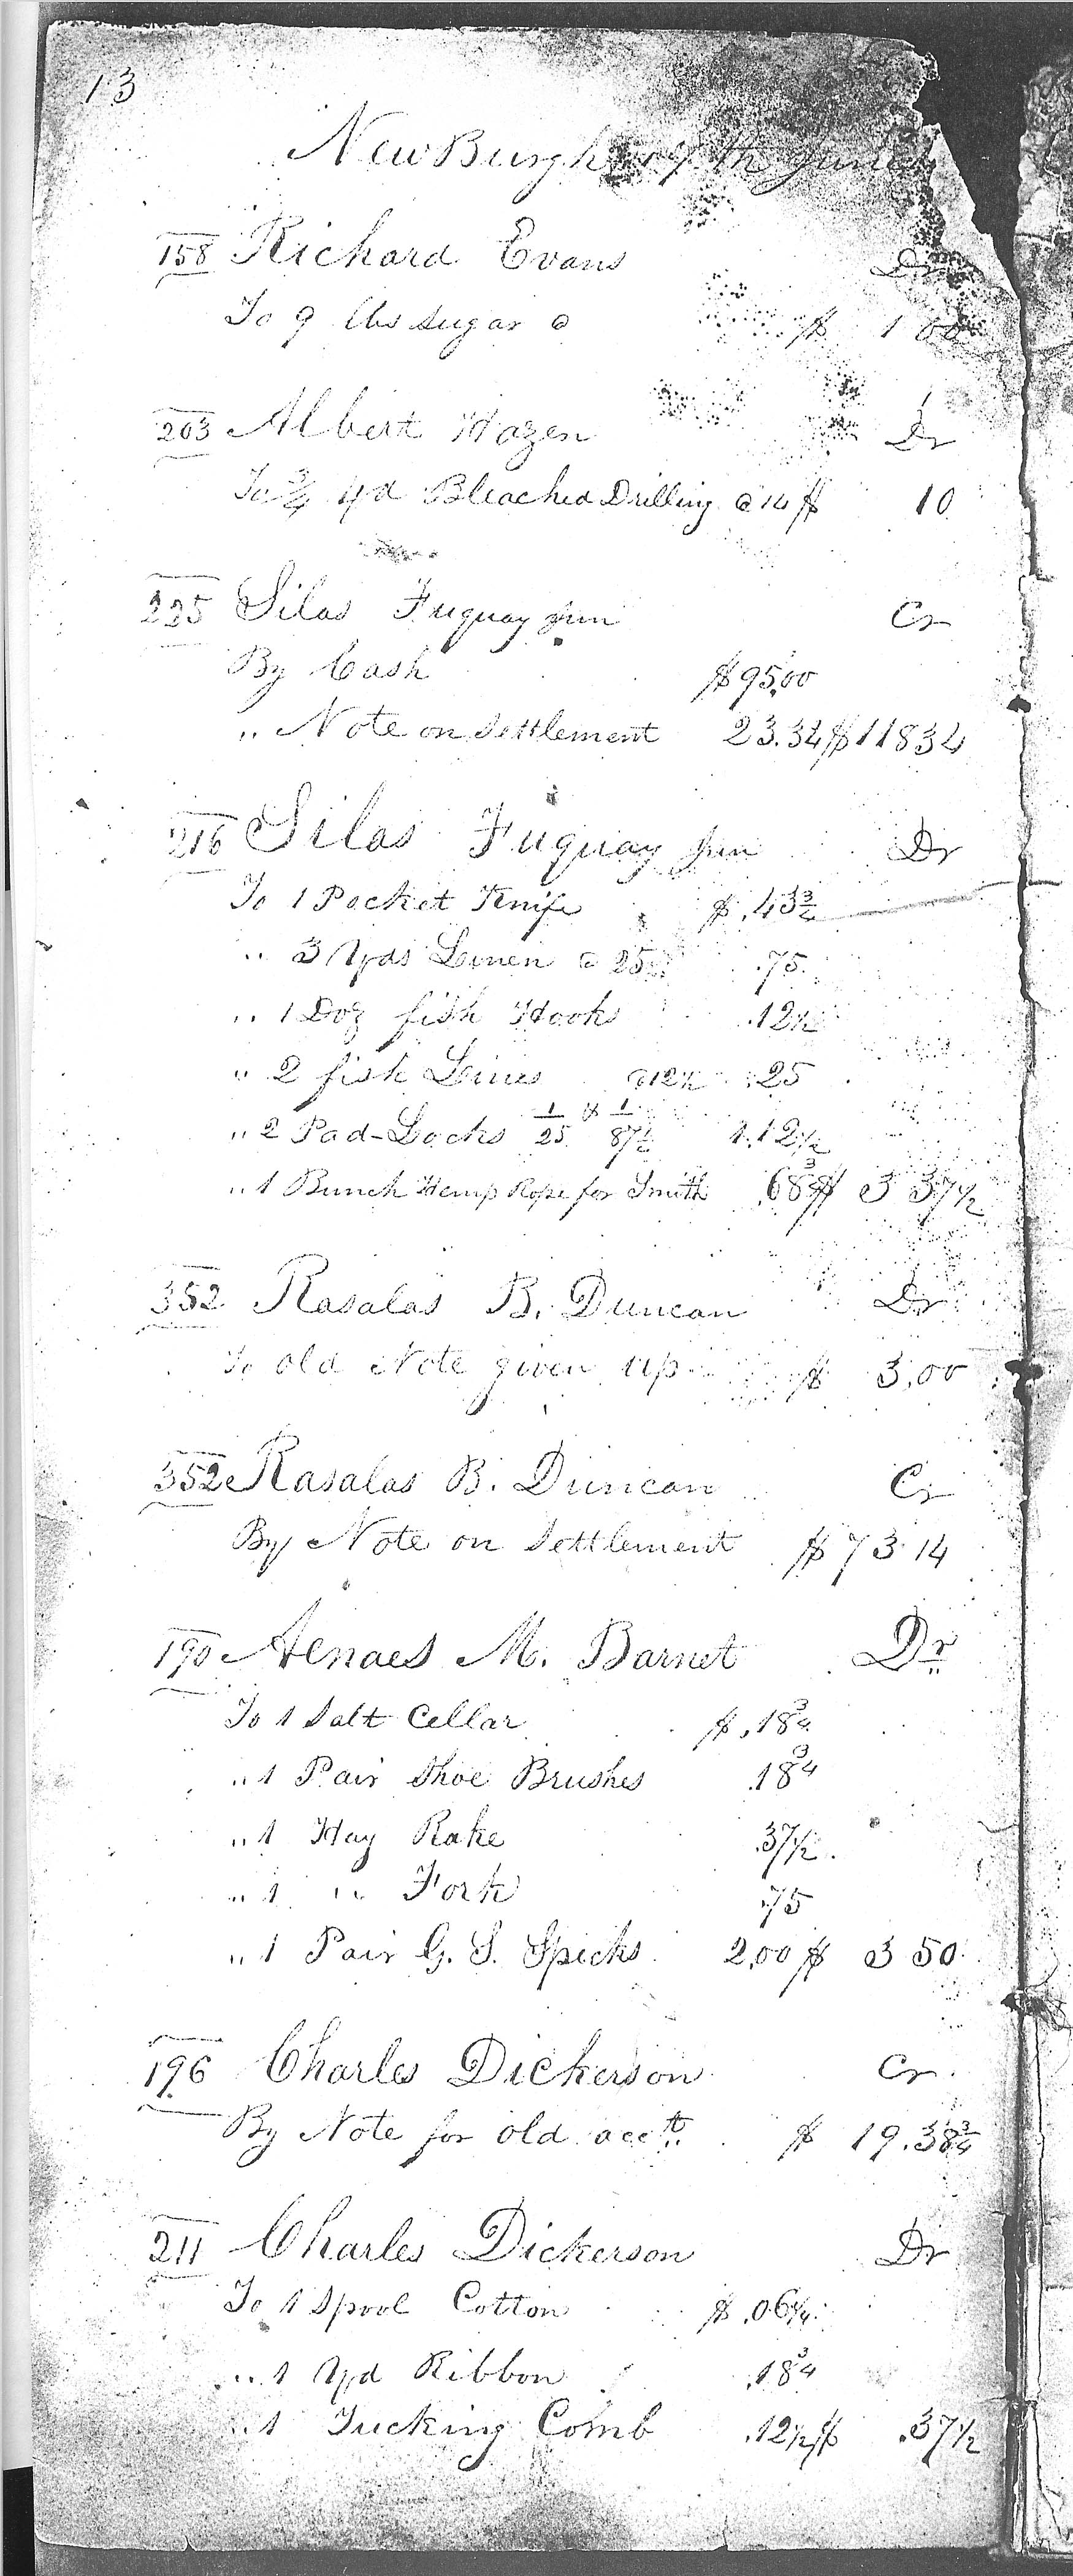 13
NewBurgh 17th June
158 Richard Evans Dr
To 9 lbs Sugar @ $ 1 00
203 Albert Hazen Dr
To 3/4 yd Bleached Drilling @ 14 $ 10
225 Silas Fuquay Jun Cr
By Cash $95.00
" Note on Settlement 23.34 $118 34
216 Silas Fuquay Jun Dr
To 1 Pocket Knife $ .43 3/4
" 3 Yds Linen @ 25 .75
" 1 Doz fish Hooks .12 1/2
" 2 fish Lines @ 12 1/2 .25
" 2 Pad-Locks 1/25 & 1/87 1/2 1.12 1/2
" 1 Bunch Hemp Rope for Smith .68 3/4 $ 3 37 1/2
352 Rasalas B. Duncan Dr
To old Note given up $ 3.00
352 Rasalas B. Duncan Cr
By Note on Settlement $ 73 14
190 Aenaes M. Barnet Dr
To 1 Salt Cellar $ .18 3/4
" 1 Pair Shoe Brushes .18 3/4
" 1 Hay Rake .37 1/2
" 1 " Fork .75
" 1 Pair G. S. Specks 2.00 $ 3 50
196 Charles Dickerson Cr
By Note for old acct $ 19.38 3/4
211 Charles Dickerson Dr
To 1 Spool Cotton $ .06 1/4
" 1 Yd Ribbon .18 3/4
" 1 Tucking Comb .12 1/2 $ .37 1/2